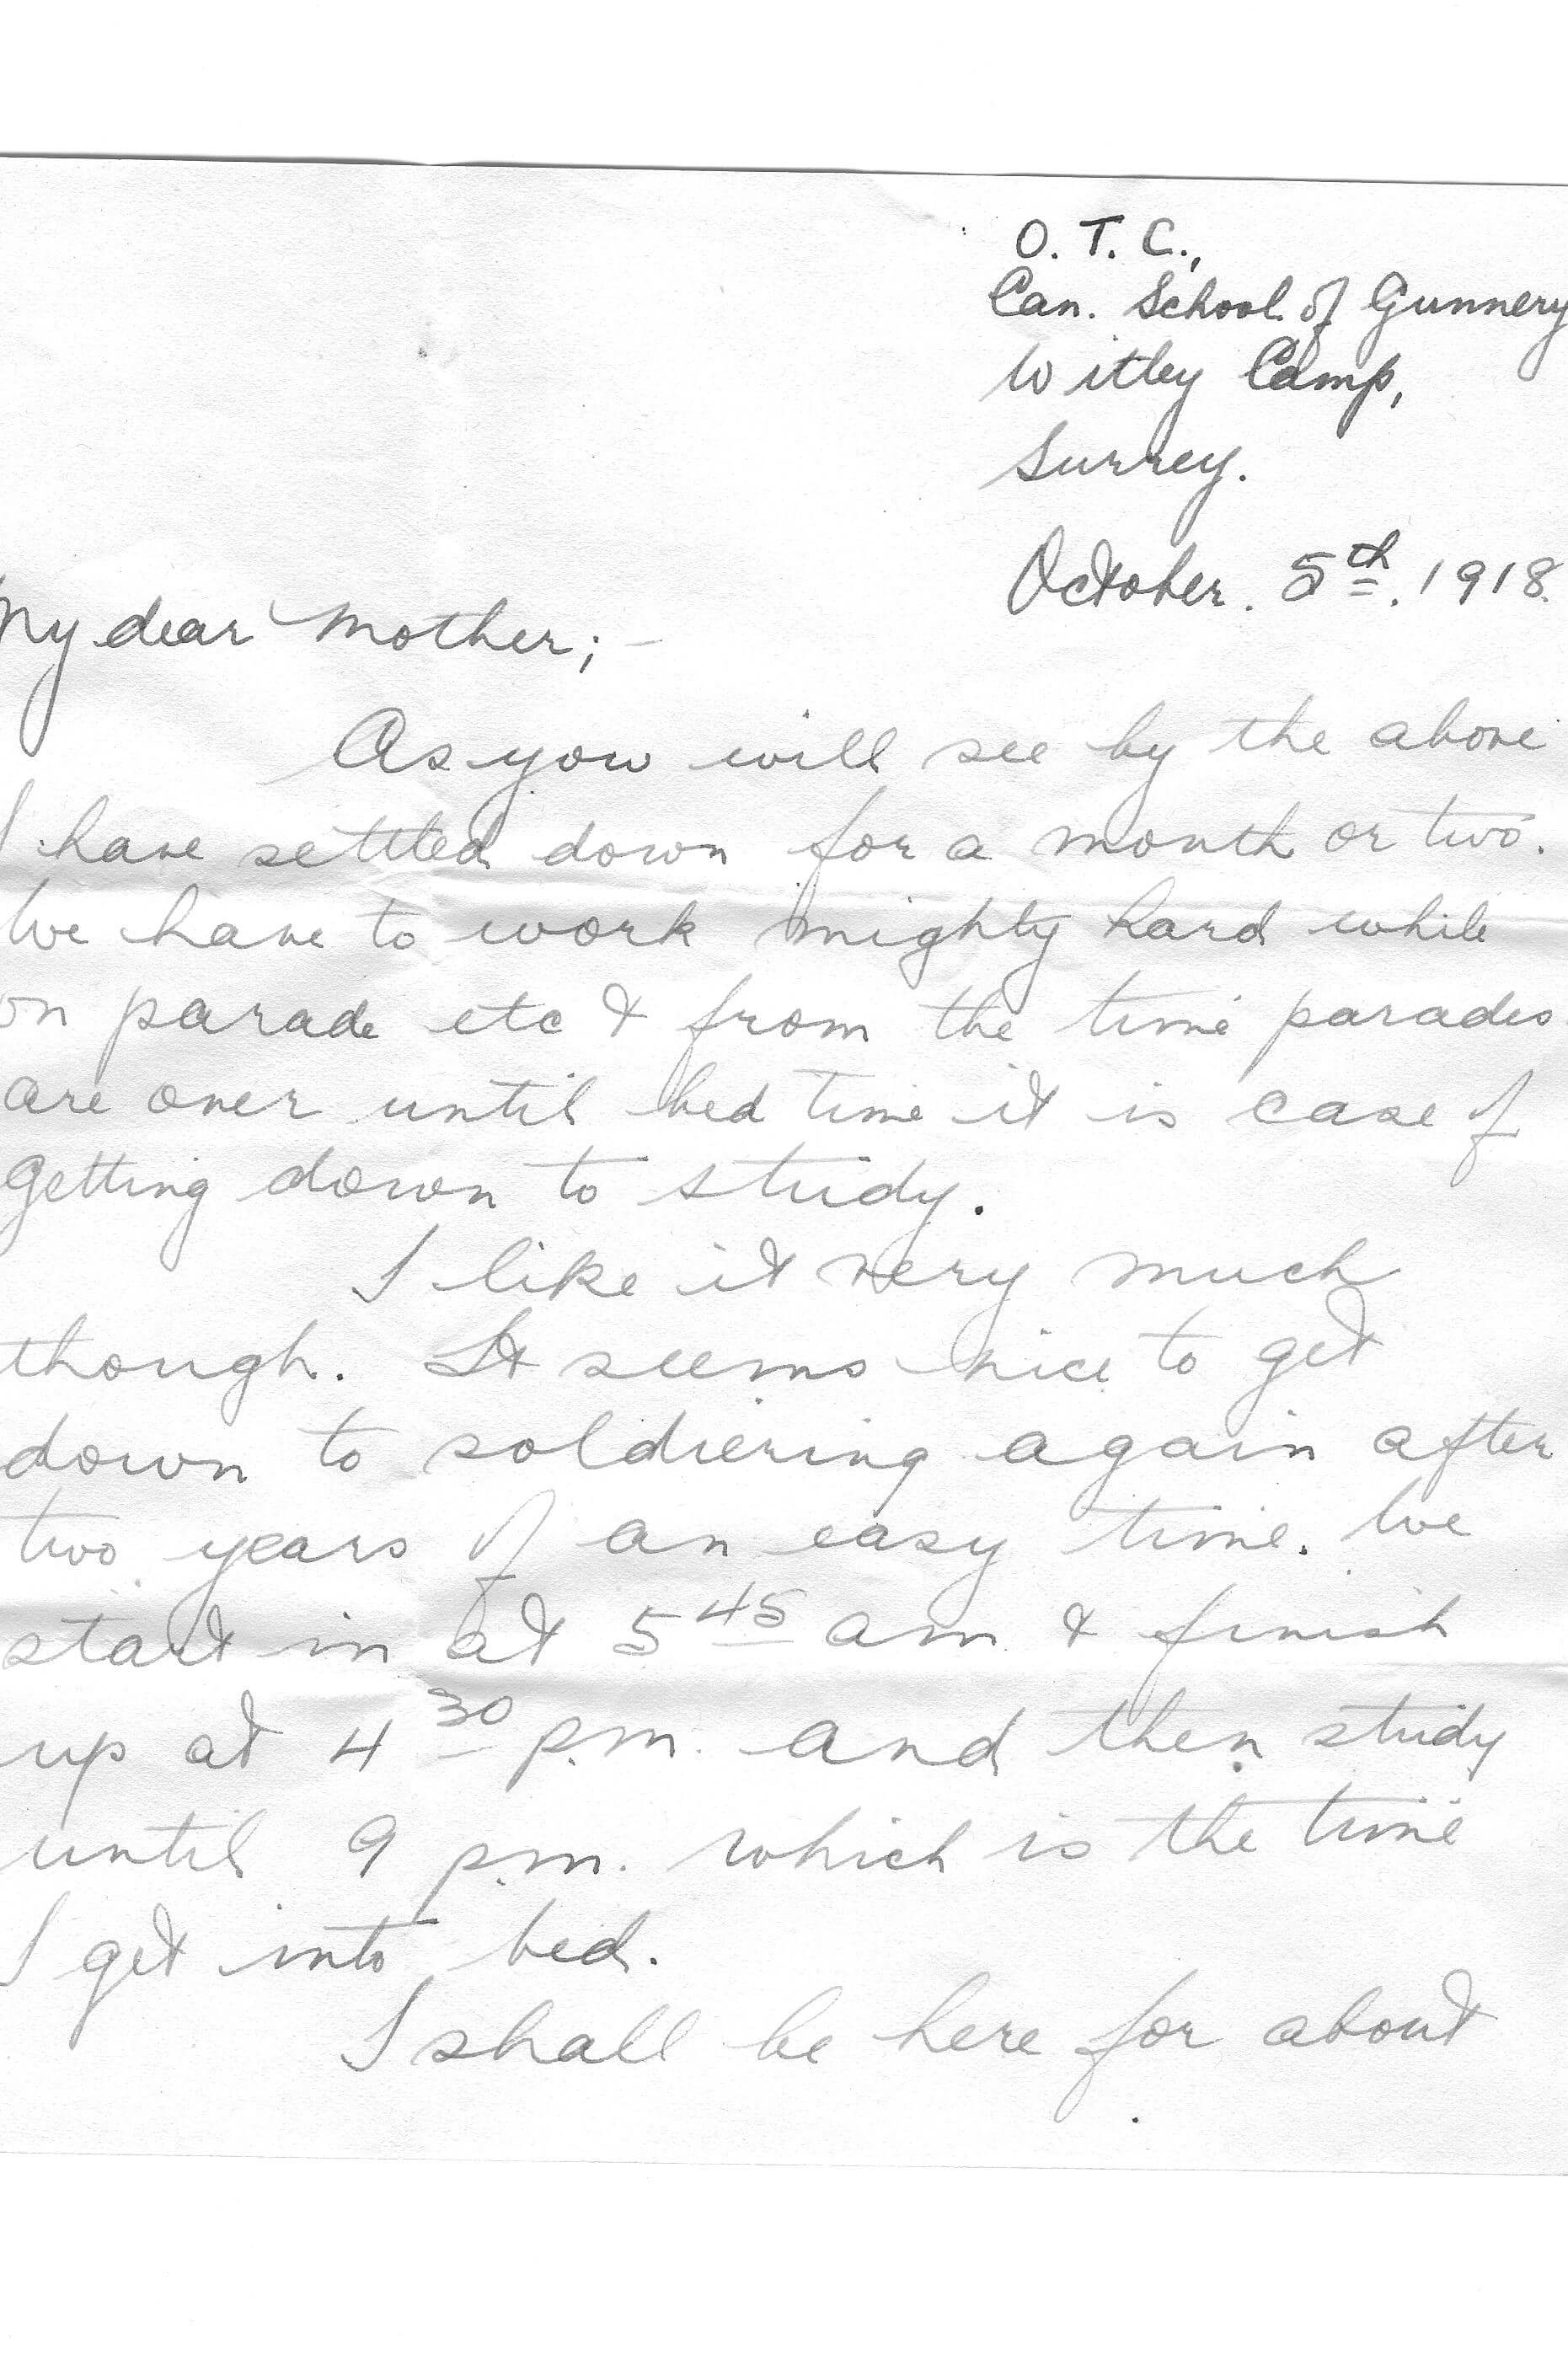 O. T. C.,
Can. School of Gunnery
Witley Camp,
Surrey.
October. 5th. 1918.
My dear Mother;-
As you will see by the above
I have settled down for a month or two.
We have to work mighty hard while
on parade etc & from the time parades
are over until bed time it is case of
getting down to study.
I like it very much
though. It seems nice to get
down to soldiering again after
two years of an easy time. We
start in at 5 45 am & finish
up at 4 30 p.m. and then study
until 9 p.m. which is the time
I get into bed.
I shall be here for about